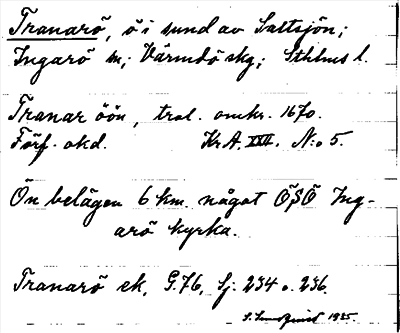 Tranarö, ö i sund av Saltsjön;
Ingarö sn; Värmdö skg; Sthlms l.
Tranar öön, trol. omkr. 1670.
Förf. okd. Kr.A. XVII. N:o 5.
Ön belägen 6 km. något ÖSÖ Ing-
arö kyrka.
Tranarö ek, G.76, Sj. 234 o. 236.
1925.